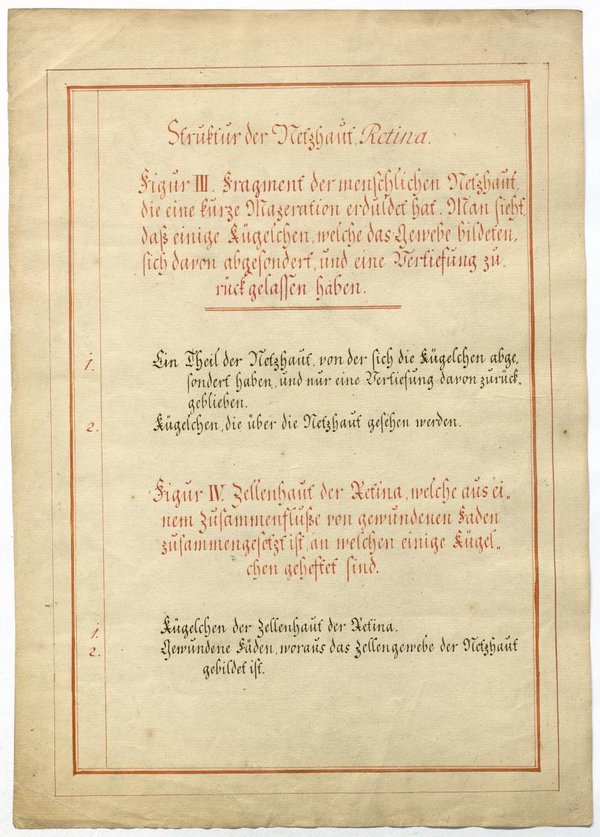 Struktur der Netzhaut, Retina.
Figur III. Fragment der menschlichen Netzhaut,
die eine kurze Mazeration erduldet hat. Man sieht,
daß einige Kügelchen, welche das Gewebe bildeten,
sich davon abgesondert, und eine Vertiefung zu,
rückgelassen haben.
1. Ein Theil der Netzhaut, von der sich die Kügelchen abge,
sondert haben, und nur eine Vertiefung davon zurück,
geblieben.
2. Kügelchen, die über die Netzhaut gesehen werden.
Figur IV. Zellenhaut der Retina, welche aus ei,
nem Zusammenfluße von gewundenen Faden
zusammengesetzt ist, an welchen einige Kügel,
chen geheftet sind.
1. Kügelchen der Zellenhaut der Retina.
2. Gewundene Fäden, woraus das Zellengewebe der Netzhaut
gebildet ist.